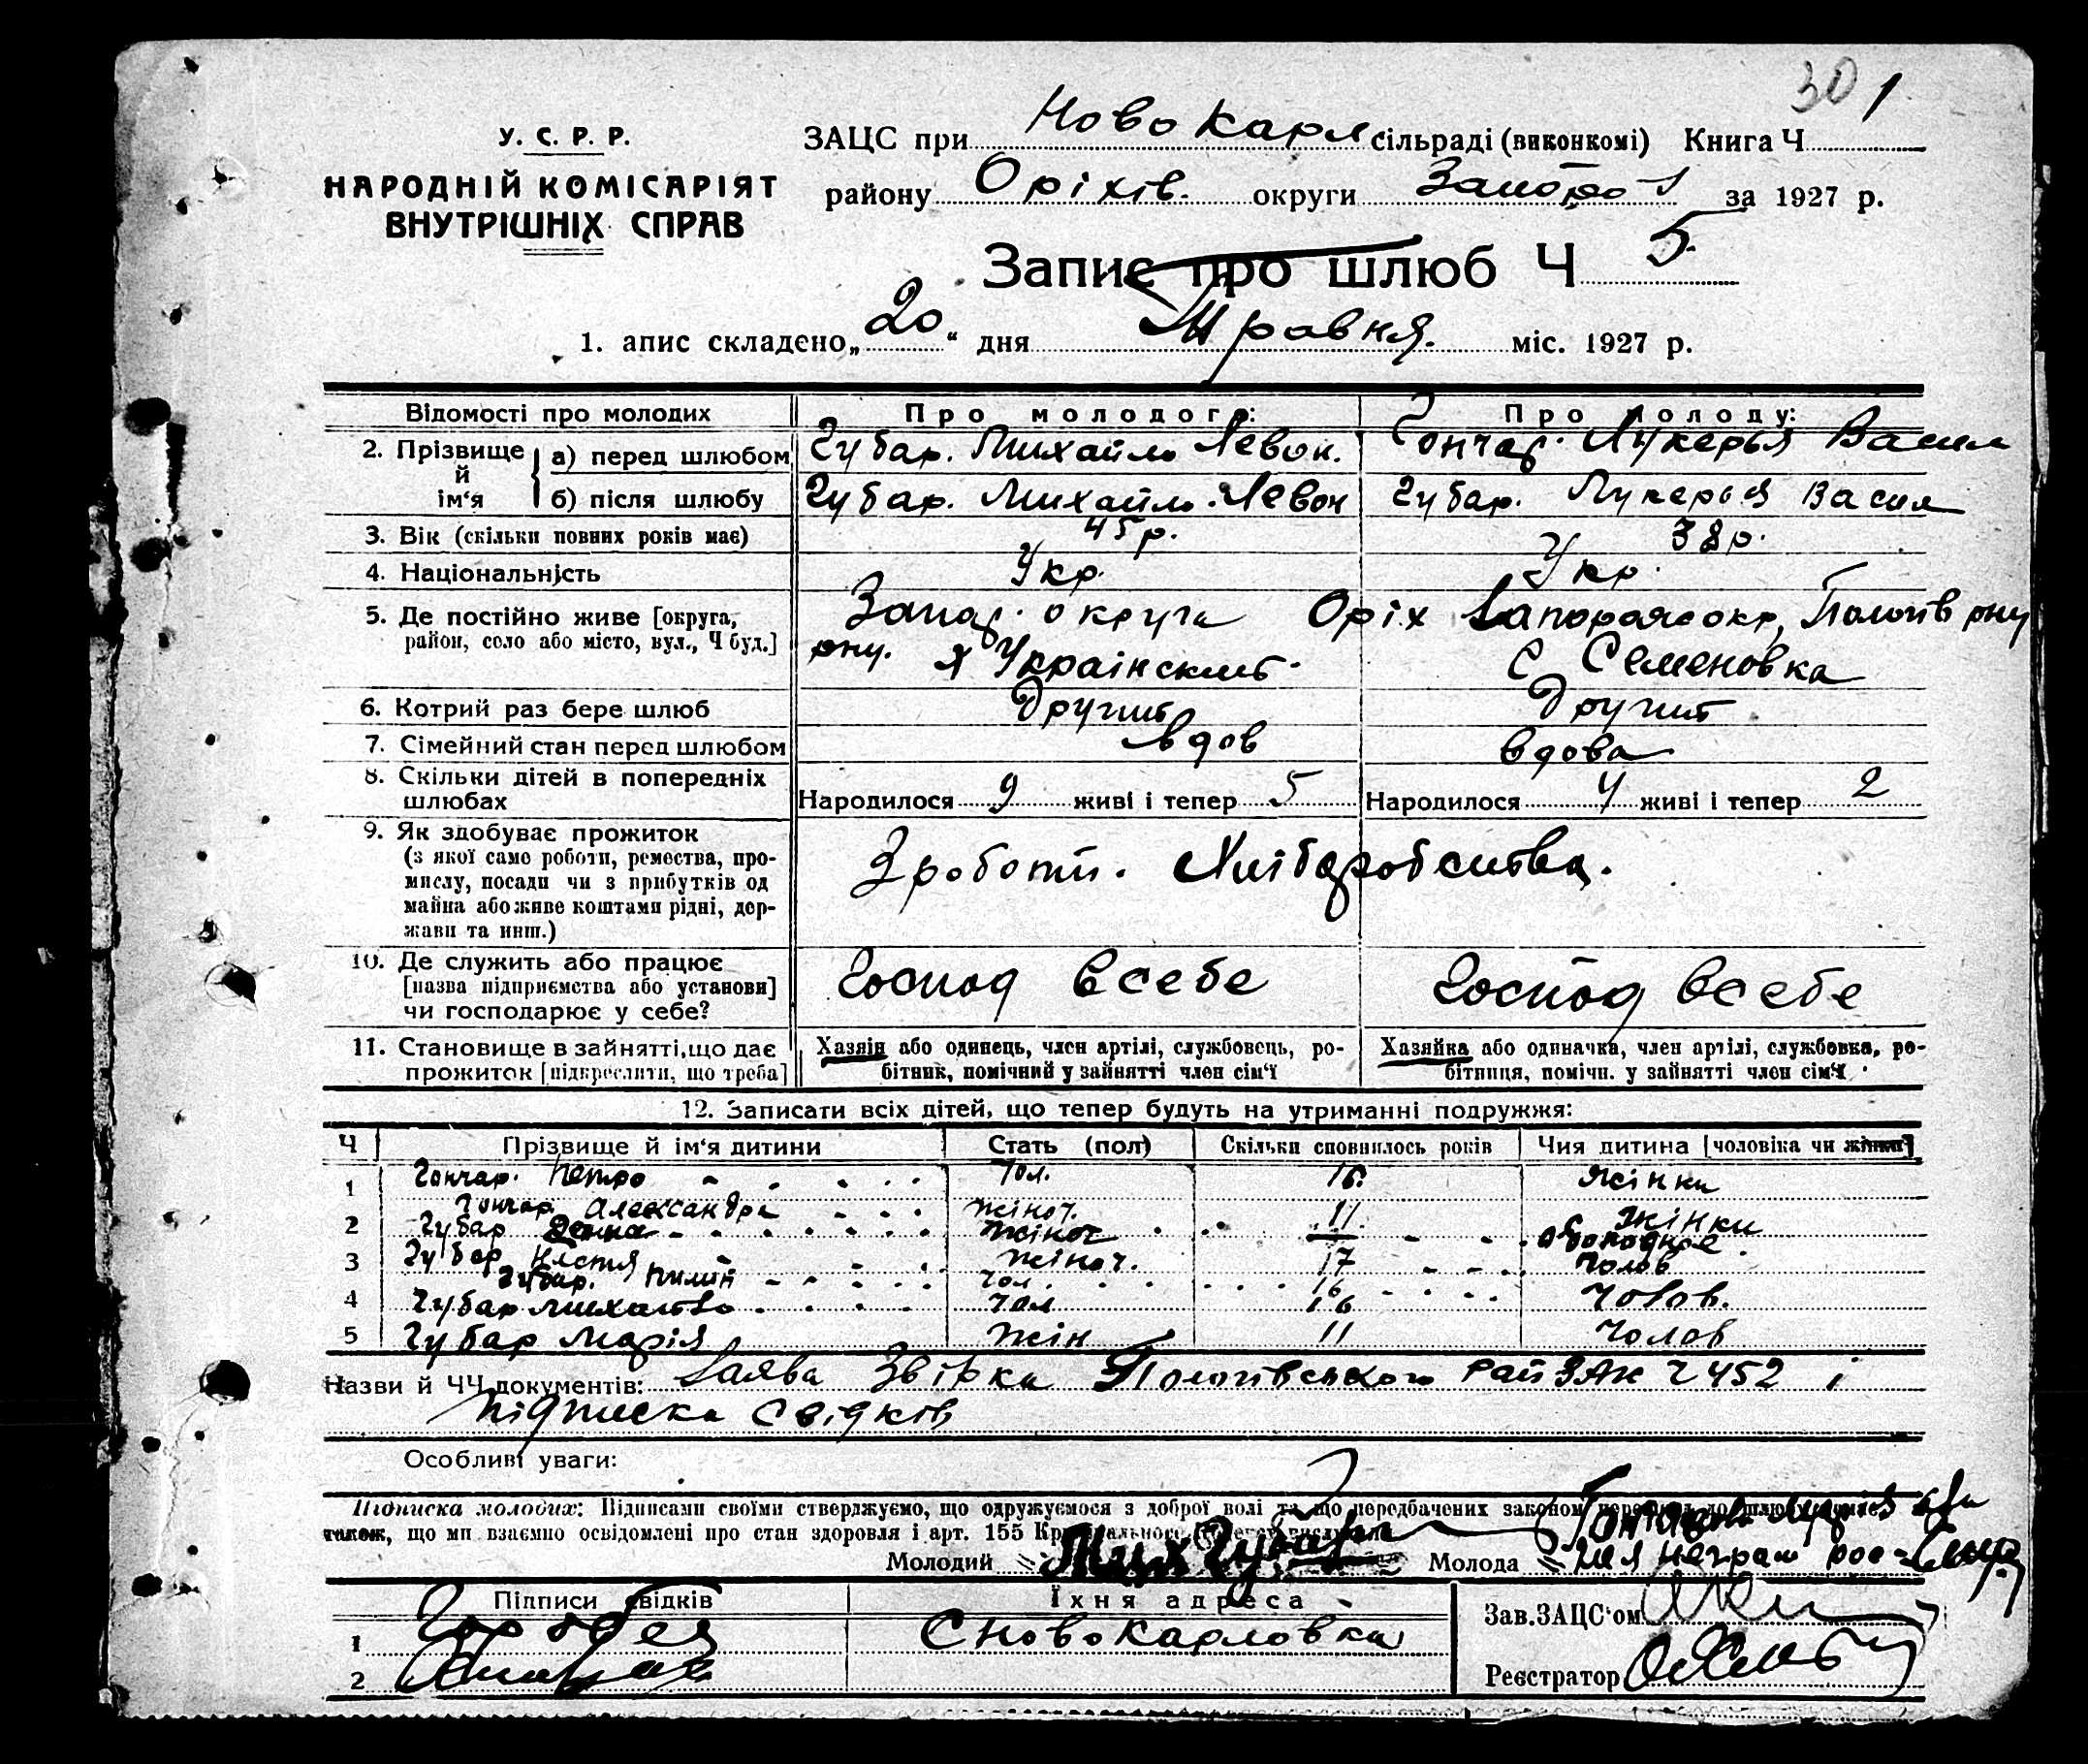 30 1
У. С. Р. Р.
НАРОДНІЙ КОМІСАРІЯТ
ВНУТРІШНІХ СПРАВ
ЗАЦС при Ново Карл сільраді (виконкомі) Книга Ч
району Оріхів. округи за 1927 р.
Запис про шлюб Ч 5
1. апис складено „20“ дня Травня. міс. 1927 р.
Відомості про молодих
Про молодого:
Про молоду:
2. Прізвище й ім‘я
а) перед шлюбом Губар. Михайло Левон. Гончар. Лукерья Васил
б) після шлюбу Губар. Михайло Левон Губар. Лукерья Васил
3. Вік (скільки повних років має) 45 р. 38 р.
4. Національність Укр. Укр.
5. Де постійно живе [округа, район, село або місто, вул., Ч буд.]
Запор. округа Оріх
рну. Українский
Запорожс окр, Пологів рну
с Семеновка
6. Котрий раз бере шлюб Другий Другий
7. Сімейний стан перед шлюбом вдов вдова
8. Скільки дітей в попередніх шлюбах
Народилося 9 живі і тепер 5 Народилося 4 живі і тепер 2
9. Як здобуває прожиток
(з якої само роботи, ремества, про-
мислу, посади чи з прибутків од
майна або живе коштами рідні, дер-
жави та инш.)
З роботи. Хлібаробства.
10. Де служить або працює
[назва підприємства або установи]
чи господарює у себе?
Господ всебе Господ всебе
11. Становище в зайнятті, що дає
прожиток [підкреслити, що треба]
Хазяїн або одинець, член артілі, службовець, ро-
бітник, помічний у зайнятті член сім‘ї
Хазяйка або одиначка, член артілі, службовка, ро-
бітниця, помічн. у зайнятті член сім‘ї
12. Записати всіх дітей, що тепер будуть на утриманні подружжя:
Ч Прізвище й ім‘я дитини Стать (пол) Скільки сповнилось років Чия дитина [чоловіка чи жінки]
1 Гончар. Петро Чол. 16. Жінки
Гончар Александра жіноч. 11 Жінки
2 Губар жіноч
3 Губар Настя жіноч. 17 Чолов
Губар. Пилип Чол. 16
4 Губар Чол 16 Чолов.
5 Губар Марія жін 11 Чолов
Назви й ЧЧ документів: Заява Звірка Пологівського Рай ЗАК Ч 452 і
підписка свідків
Особливі уваги:
Підписка молодих: Підписами своїми стверджуємо, що одружуємося з доброї волі та що передбачених законом перешкод до шлюбу
також, що ми взаємно освідомлені про стан здоровля і арт. 155 Кримінального
Молодий Мих Губар Молода
Підписи свідків Їхня адреса
1 С Ново Карловка
2
Зав. ЗАЦС‘ом
Реєстратор